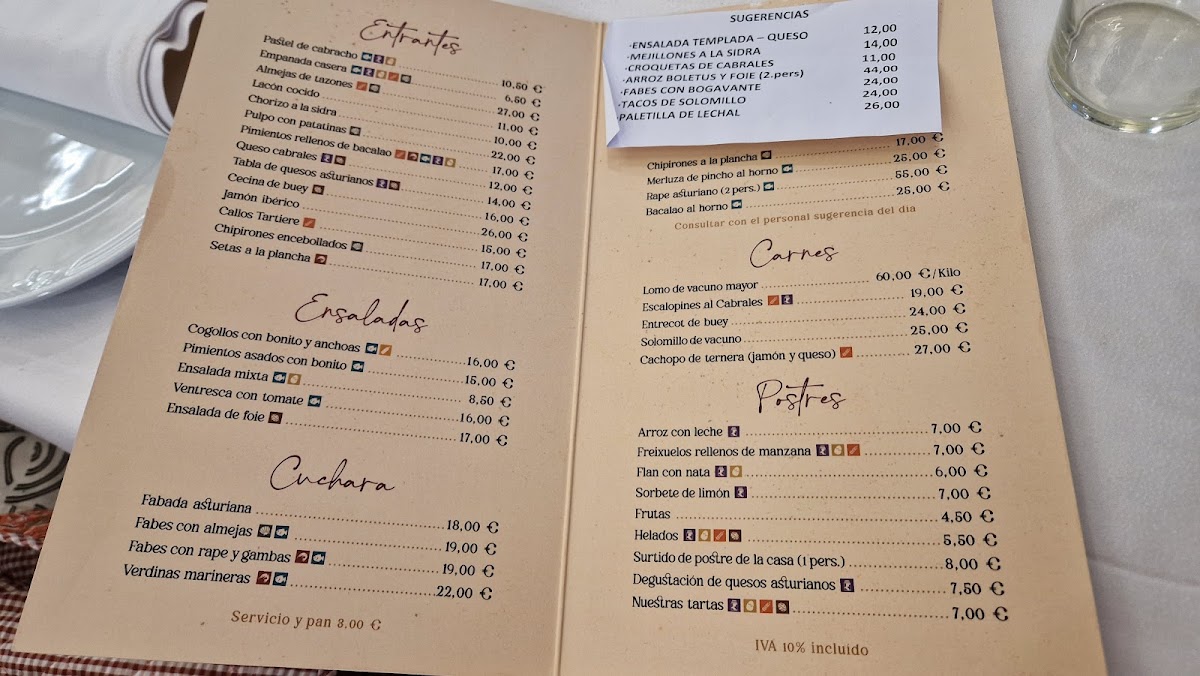 Entrantes
Pastel de cabracho 10,50 €
Empanada casera 6,50 €
Almejas de tazones 27,00 €
Lacón cocido 11,00 €
Chorizo a la sidra 10,00 €
Pulpo con patatinas 22,00 €
Pimientos rellenos de bacalao 17,00 €
Queso cabrales 12,00 €
Tabla de quesos asturianos 14,00 €
Cecina de buey 16,00 €
Jamón ibérico 26,00 €
Callos Tartiere 15,00 €
Chipirones encebollados 17,00 €
Setas a la plancha 17,00 €
Ensaladas
Cogollos con bonito y anchoas 16,00 €
Pimientos asados con bonito 15,00 €
Ensalada mixta 8,50 €
Ventresca con tomate 16,00 €
Ensalada de foie 17,00 €
Cuchara
Fabada asturiana 18,00 €
Fabes con almejas 19,00 €
Fabes con rape y gambas 19,00 €
Verdinas marineras 22,00 €
Servicio y pan 3,00 €
SUGERENCIAS
·ENSALADA TEMPLADA – QUESO 12,00
·MEJILLONES A LA SIDRA 14,00
·CROQUETAS DE CABRALES 11,00
·ARROZ BOLETUS Y FOIE (2.pers) 44,00
·FABES CON BOGAVANTE 24,00
·TACOS DE SOLOMILLO 24,00
·PALETILLA DE LECHAL 26,00
Chipirones a la plancha 17,00 €
Merluza de pincho al horno 25,00 €
Rape asturiano (2 pers.) 55,00 €
Bacalao al horno 25,00 €
Consultar con el personal sugerencia del día
Carnes
Lomo de vacuno mayor 60,00 €/Kilo
Escalopines al Cabrales 19,00 €
Entrecot de buey 24,00 €
Solomillo de vacuno 25,00 €
Cachopo de ternera (jamón y queso) 27,00 €
Postres
Arroz con leche 7,00 €
Freixuelos rellenos de manzana 7,00 €
Flan con nata 6,00 €
Sorbete de limón 7,00 €
Frutas 4,50 €
Helados 5,50 €
Surtido de postre de la casa (1 pers.) 8,00 €
Degustación de quesos asturianos 7,50 €
Nuestras tartas 7,00 €
IVA 10% incluido